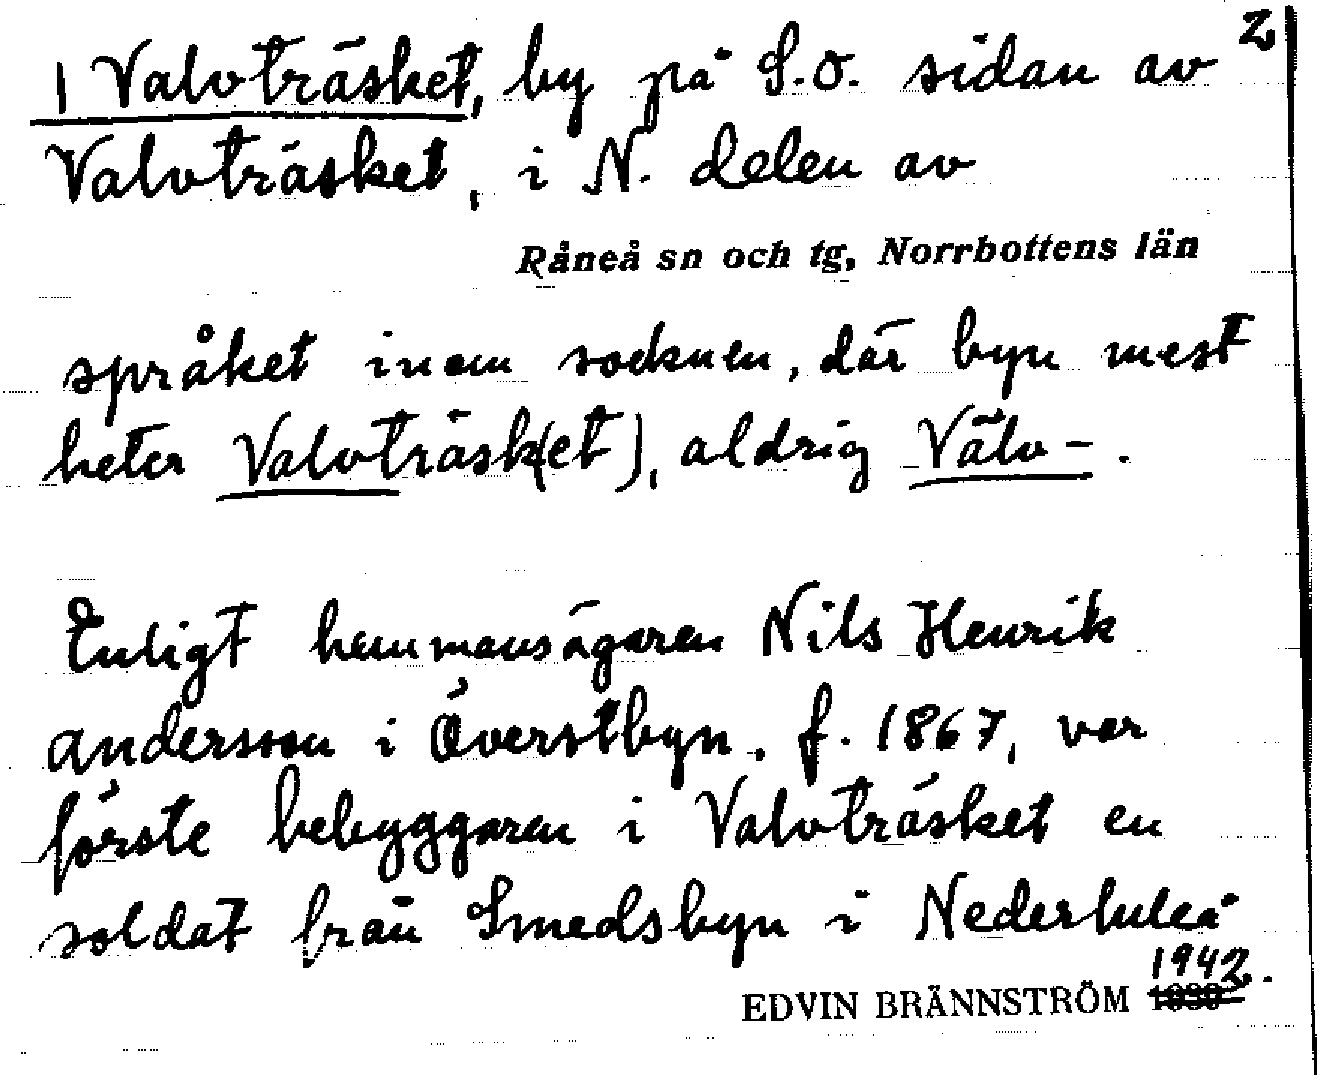 2
1 Valvträsket, by på S.O. sidan av
Valvträsket, i N. delen av
Råneå sn och tg, Norrbottens län
språket inom socknen, där byn mest
heter Valvträsk(et), aldrig Välv- .
Enligt hemmansägaren Nils Henrik
Andersson i Överstbyn, f. 1867, var
förste bebyggaren i Valvträsket en
soldat från Smedsbyn i Nederluleå
1942.
EDVIN BRÄNNSTRÖM 1939